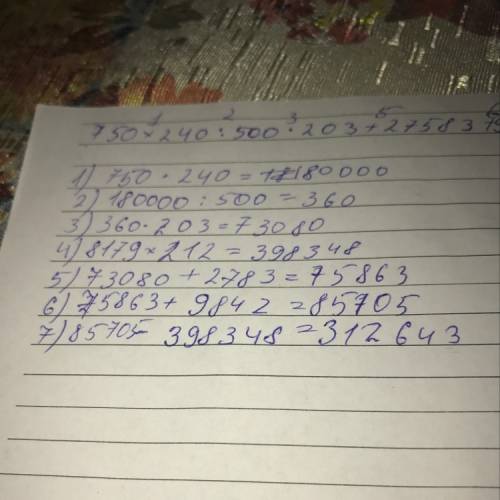 1 2 3 5
750 × 240 : 500 · 203 + 27583
1) 750 · 240 = 180000
2) 180000 : 500 = 360
3) 360 · 203 = 73080
4) 8179 × 212 = 398348
5) 73080 + 2783 = 75863
6) 75863 + 9842 = 85705
7) 85705 - 398348 = 312643